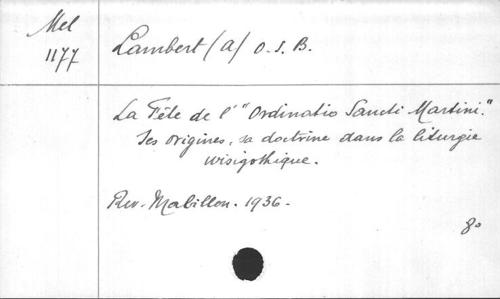 Mel
1177
Lambert (A) O.S.B.
La Fête de l' "Ordinatio Sancti Martini."
Ses origines, sa doctrine dans la liturgie
wisigothique.
Rev. Mabillon. 1936.
8º